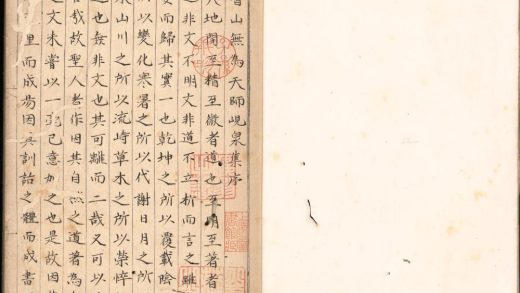 山無為天師峴泉集序
地間至精至微者道也至明至著者
非文不明文非道不立析而言之雖
而歸其實一也乾坤之所以覆載陰
所以變化寒暑之所以代謝日月之所
山川之所以流峙草木之所以榮悴
也非文也其可離而二哉又可以
哉故聖人者作因其自然之道著為
文未嘗以一毫己意加之也是故因
而成易因其訓誥之體而成書